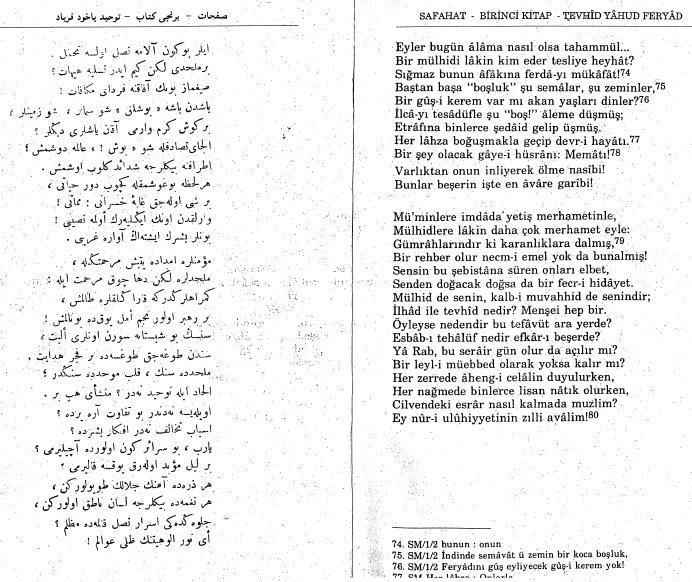 صفحات - برنجی کتاب - توحید یاخود فریاد
ایلر بوکون آلامه نصل اولسه تحمل
بر ملحدی لکن کیم ایدر تسلیه هیهات ؟
صیغماز بونك آفاقنه فردای مکافات !
باشدن باشه « بوشلق » شو سمالر ، شو زمینلر ،
بر کوش کرم وارمی آقن یاشلری دیکلر ؟
الجای تصادفله شو « بوش ! » عالمه دوشمش ؛
اطرافنه بیکلرجه شدائد کلوب اوشمش .
هر لحظه بوغوشمقله کچوب دور حیاتی ،
بر شی اوله‌جق غایۀ خسرانی : مماتی !
وارلقدن اونك ایکلیه‌رك اولمه نصیبی !
بونلر بشرك ایشته‌اڭ آواره غریبی .
مؤمنلره امداده یتیش مرحمتکله ،
ملحدلره لکن دها چوق مرحمت ایله :
کمراهلردر که قارا کلقلره طالمش ،
بر رهبر اولور نجم امل یوق‌ده بوکالمش !
سنسڭ بو شبستانه سورن اونلری البت ،
سندن طوغه‌جق طوغسه‌ده بر فجر هدایت .
ملحدده سنك ، قلب موحدده سنکدر ؛
الحاد ایله توحید نه‌در ؟ منشأی هب بر .
اویله‌یسه ندندر بو تفاوت آره یرده ؟
اسباب تخالف نه‌در افکار بشرده ؟
یارب ، بو سرائر کون اولورده آچیلیرمی ؟
بر لیل مؤبد اوله‌رق یوقسه قالیرمی ؟
هر ذره‌ده آهنك جلالك طویولورکن ،
هر نغمه‌ده بیکلرجه لسان ناطق اولورکن ،
جلوه‌کده‌کی اسرار نصل قالمه‌ده مظلم ؟
أی نور الوهیتنك ظلی عوالم !
SAFAHAT - BİRİNCİ KİTAP - TEVHÎD YÂHUD FERYÂD
Eyler bugün âlâma nasıl olsa tahammül...
Bir mülhidi lâkin kim eder tesliye heyhât?
Sığmaz bunun âfâkına ferdâ-yı mükâfât!74
Baştan başa "boşluk" şu semâlar, şu zeminler,75
Bir gûş-i kerem var mı akan yaşları dinler?76
İlcâ-yı tesâdüfle şu "boş!" âleme düşmüş;
Etrafına binlerce şedâid gelip üşmüş.
Her lâhza boğuşmakla geçip devr-i hayâtı.77
Bir şey olacak gâye-i hüsrânı: Memâtı!78
Varlıktan onun inliyerek ölme nasîbi!
Bunlar beşerin işte en âvâre garîbi!
Mü'minlere imdâda yetiş merhametinle,
Mülhidlere lâkin daha çok merhamet eyle:
Gümrâhlarındır ki karanlıklara dalmış,79
Bir rehber olur necm-i emel yok da bunalmış!
Sensin bu şebistâna süren onları elbet,
Senden doğacak doğsa da bir fecr-i hidâyet.
Mülhid de senin, kalb-i muvahhid de senindir;
İlhâd ile tevhîd nedir? Menşei hep bir.
Öyleyse nedendir bu tefâvüt ara yerde?
Esbâb-ı tehâlüf nedir efkâr-ı beşerde?
Yâ Rab, bu serâir gün olur da açılır mı?
Bir leyl-i müebbed olarak yoksa kalır mı?
Her zerrede âheng-i celâlin duyulurken,
Her nağmede binlerce lisan nâtık olurken,
Cilvendeki esrâr nasıl kalmada muzlim?
Ey nûr-i ulûhiyyetinin zılli avâlim!80
74. SM/1/2 bunun : onun
75. SM/1/2 İndinde semâvât ü zemin bir koca boşluk,
76. SM/1/2 Feryâdını gûş eyliyecek gûş-i kerem yok!